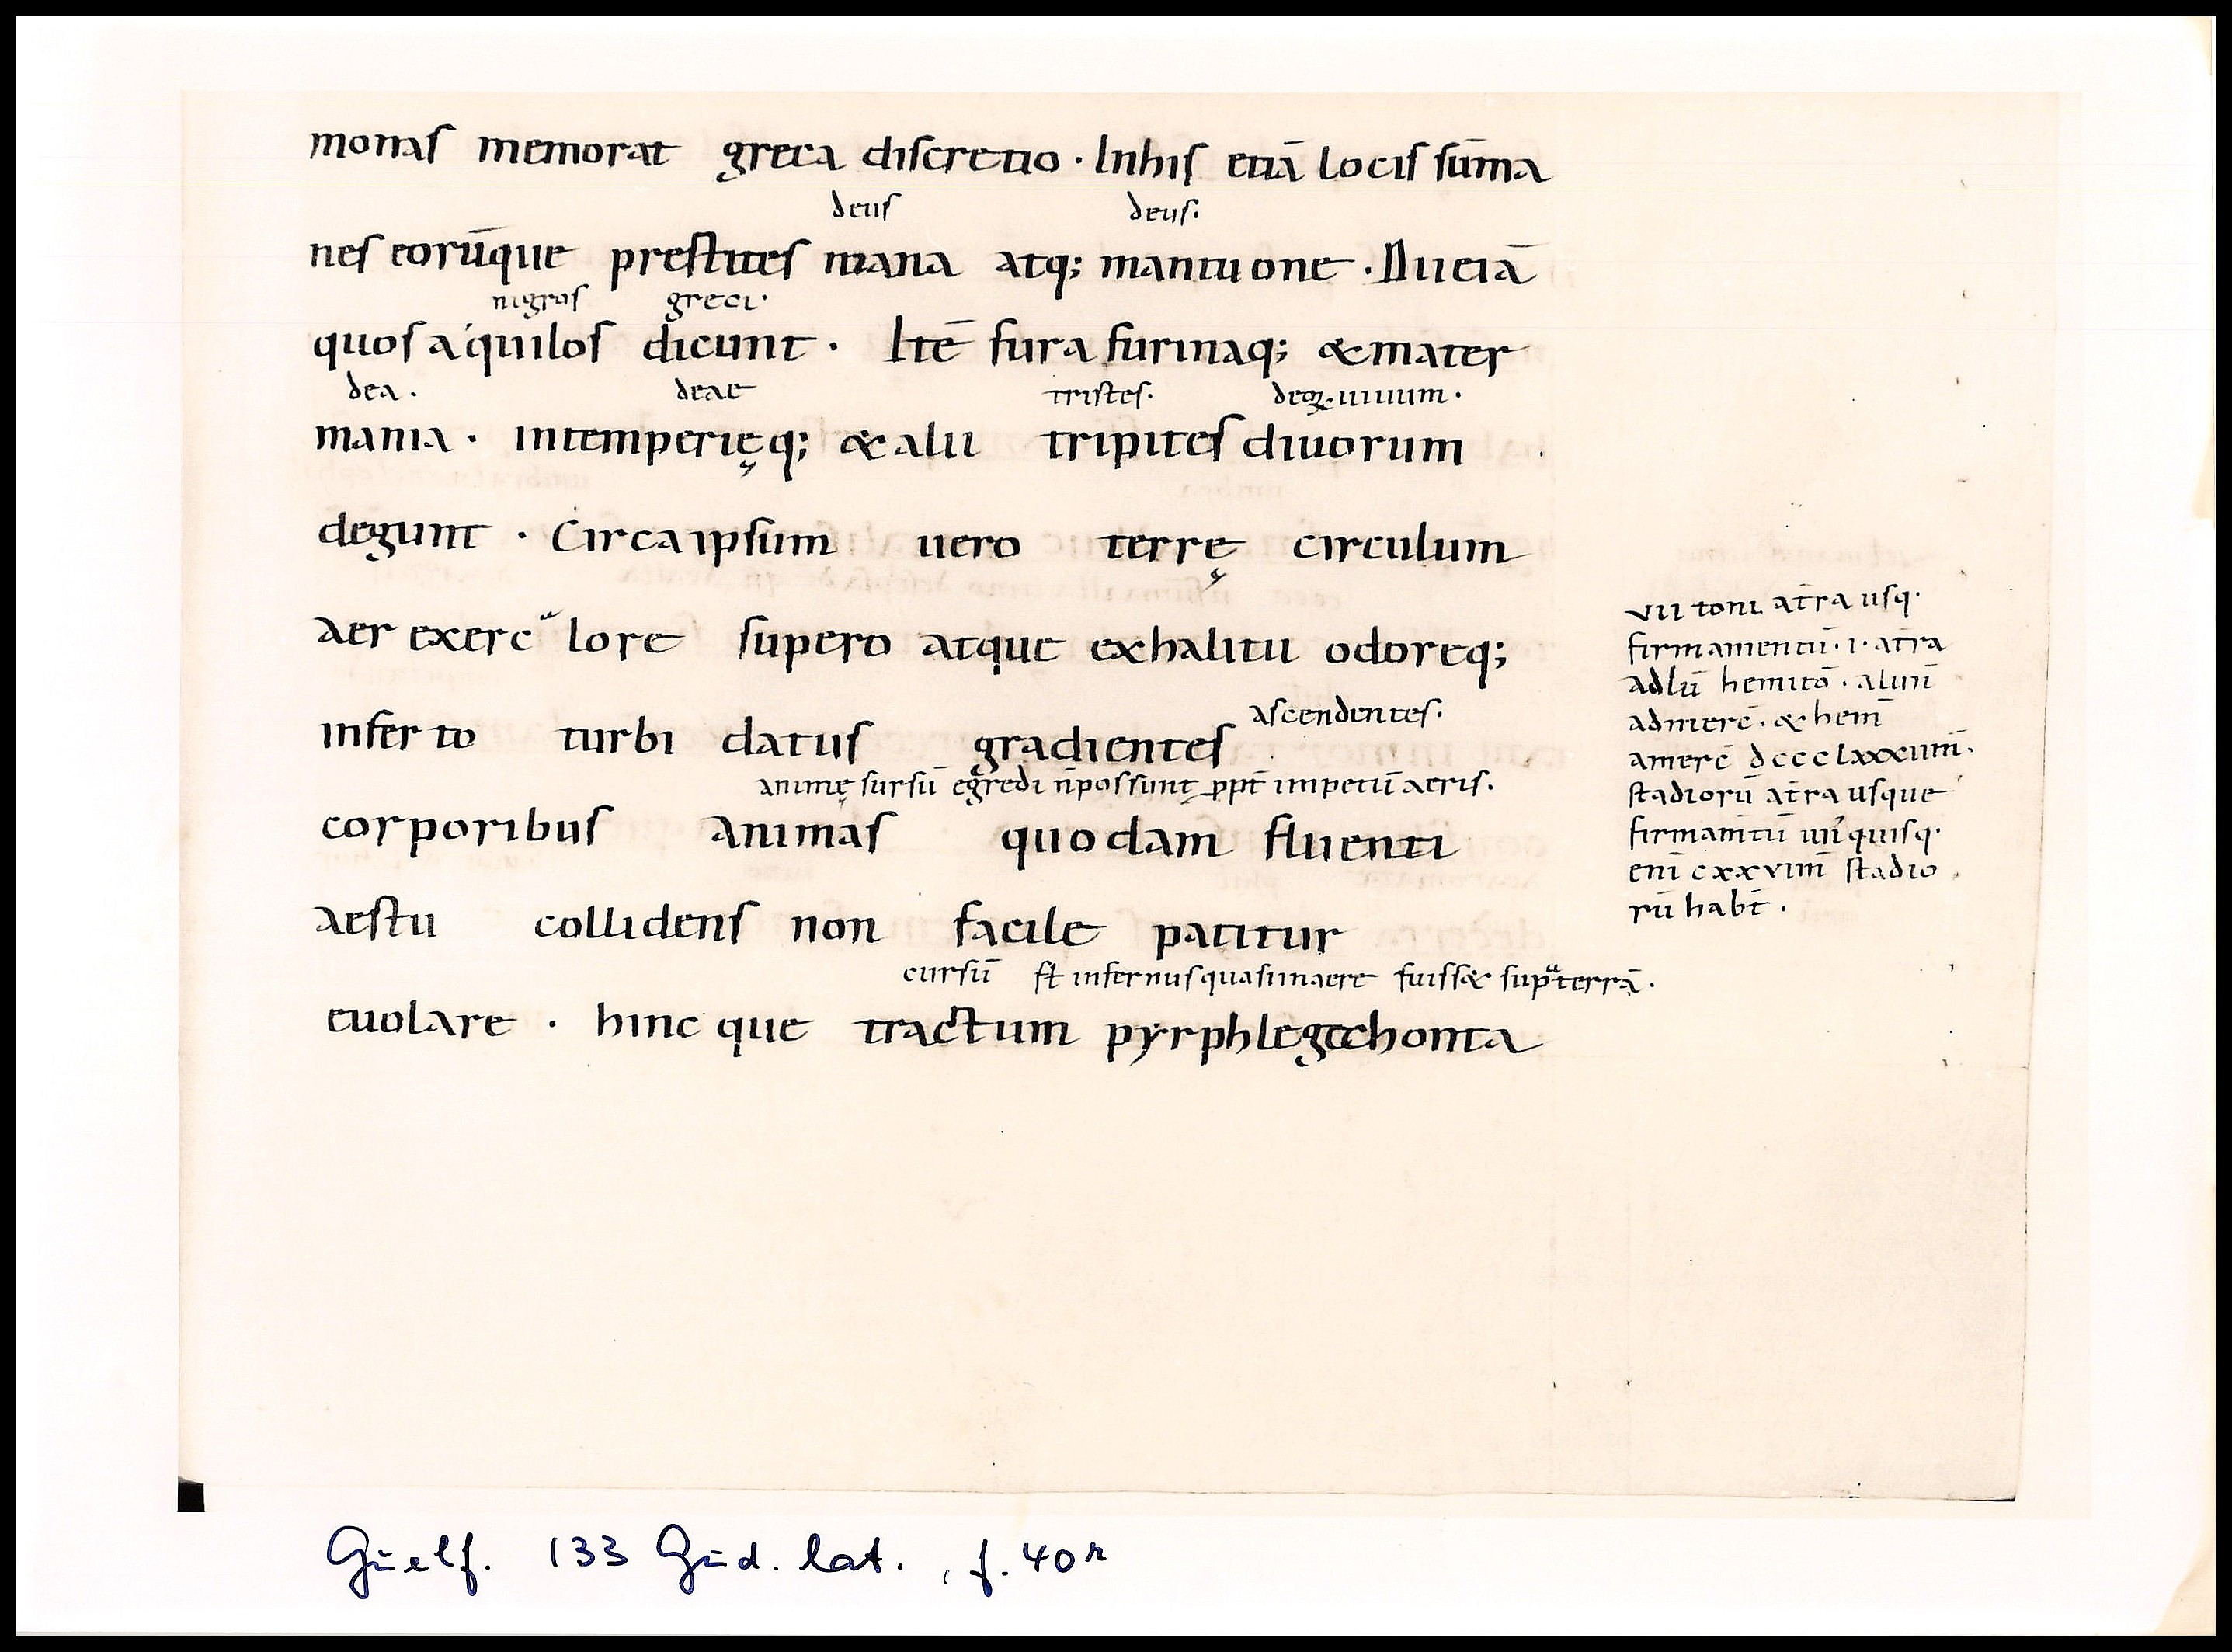 monas memorat greca discretio · Inhis etiā locis sūma
deus deus.
nes eorūque prestites mana atq; mantuone · Dii etiā
nigros greci·
quos aquilos dicunt · Itē fura furinaq; & mater
dea. deae tristes. deoꝝ.
mania · intemperięq; & alii tripites diuorum
degunt · Circa ipsum uero terrę circulum
aer exercᵃlore supero atque exhalitu odoreq;
ascendentes.
infer to turbi datus gradientes
animę sursū egredi n̄ possunt ꝓpt̄ impetū aeris.
corporibus animas quodam fluenti
aestu collidens non facile patitur
cursū st̄ infernus quasi in aere fuiss& supᵃterrā.
euolare · hinc que tractum pyrphlegethonta
vii toni at̄ra usq·
firmamentū· i· at̄ra
adlū hemitō · alim̄
admerc̄ · & hem̄
amerc̄ dccclxxxuiiii·
stadiorū at̄ra usque
firmam̄tū un̄quisq·
eni̅ cxxviiii stadio
rū habt̄ ·
Guelf. 133 Gud. lat., f. 40r